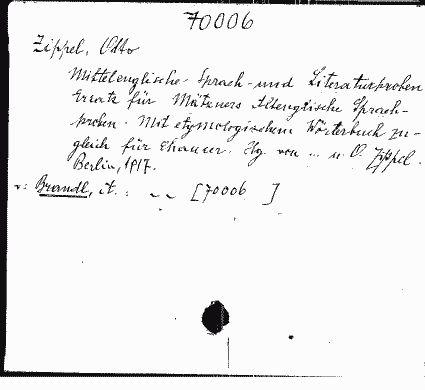 70006
Zippel, Otto
Mittelenglische Sprach- und Literaturproben
Ersatz für Mätzners Altenglische Sprach-
proben. Mit etymologischem Wörterbuch zu-
gleich für Chaucer. Hg. von ... u. O. Zippel.
Berlin, 1917.
v: Brandl, A. : ~ ~ [70006 ]